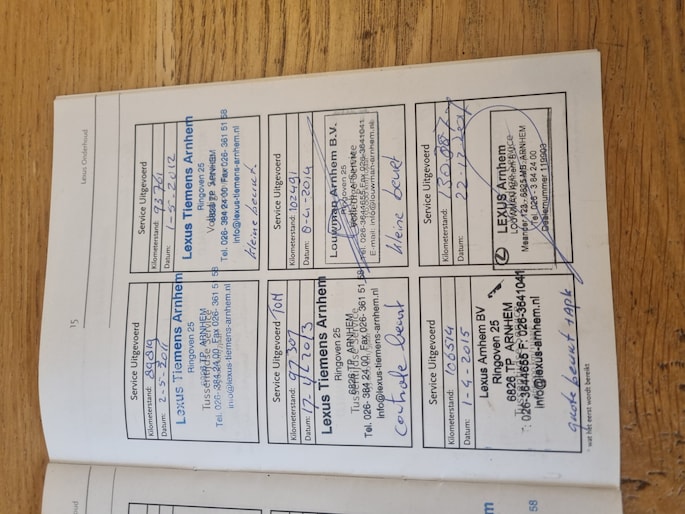 15
Lexus Onderhoud
Service Uitgevoerd
Kilometerstand:
Datum: 2-5-2011
Lexus Tiemens Arnhem
Ringoven 25
6826 TP ARNHEM
Tussentijdse service
Tel. 026-384 24 00 Fax 026-361 51 58
info@lexus-tiemens-arnhem.nl
Service Uitgevoerd
Kilometerstand: 93761
Datum: 1-5-2012
Lexus Tiemens Arnhem
Ringoven 25
6826 TP ARNHEM
Tel. 026-384 24 00 Fax 026-361 51 58
info@lexus-tiemens-arnhem.nl
kleine beurt
Service Uitgevoerd
Kilometerstand: 97307
Datum:
Lexus Tiemens Arnhem
Ringoven 25
6826 TP ARNHEM
Tussentijdse service
Tel. 026-384 24 00 Fax 026-361 51 58
info@lexus-tiemens-arnhem.nl
Controle beurt
Service Uitgevoerd
Kilometerstand: 102491
Datum: 8-4-2014
Louwman Arnhem B.V.
Ringoven 25
Tel. 026-3644655 Fax 026-3641041
E-mail: info@louwman-arnhem.nl
kleine beurt
Service Uitgevoerd
Kilometerstand: 106514
Datum: 1-4-2015
Lexus Arnhem BV
Ringoven 25
6826 TP ARNHEM
T: 026-3644655 F: 026-3641041
info@lexus-arnhem.nl
grote beurt + Apk
Service Uitgevoerd
Kilometerstand:
Datum:
LEXUS Arnhem
Tel. 026 - 3 84 24 00
Dealernummer
* wat het eerst wordt bereikt